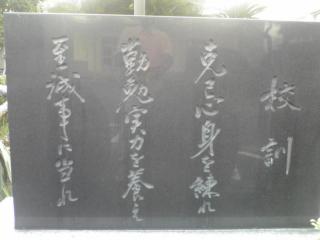 校訓
克己心身を練れ
勤勉実力を養え
至誠事に当れ